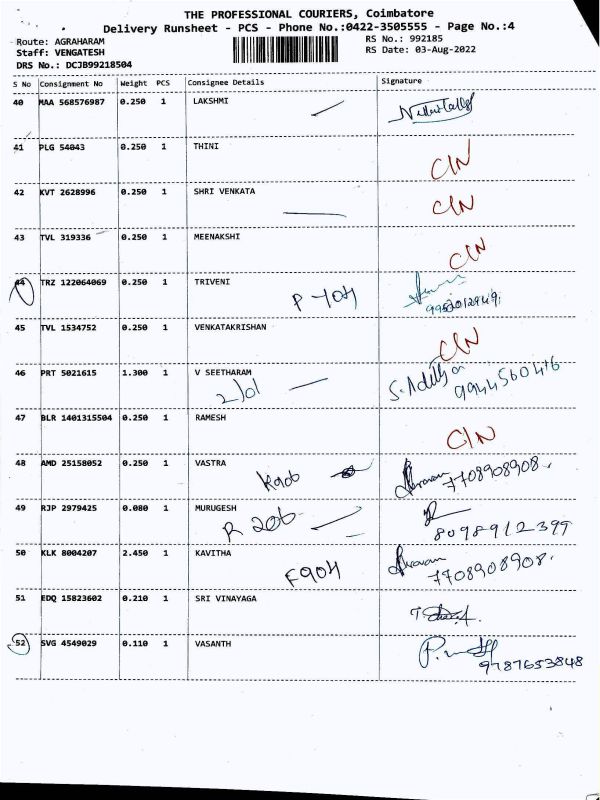 THE PROFESSIONAL COURIERS, Coimbatore
Delivery Runsheet - PCS - Phone No.:0422-3505555 - Page No.:4
Route: AGRAHARAM RS No.: 992185
Staff: VENGATESH RS Date: 03-Aug-2022
DRS No.: DCJB99218504
S No Consignment No Weight PCS Consignee Details Signature
40 MAA 568576987 0.250 1 LAKSHMI
41 PLG 54043 0.250 1 THINI C/N
42 KVT 2628996 0.250 1 SHRI VENKATA C/N
43 TVL 319336 0.250 1 MEENAKSHI C/N
44 TRZ 122064069 0.250 1 TRIVENI
P-404
45 TVL 1534752 0.250 1 VENKATAKRISHAN C/N
46 PRT 5021615 1.300 1 V SEETHARAM
2/01 9944560416
47 BLR 1401315504 0.250 1 RAMESH C/N
48 AMD 25158052 0.250 1 VASTRA
7708908908.
49 RJP 2979425 0.080 1 MURUGESH
R 206 8098912399
50 KLK 8004207 2.450 1 KAVITHA
F904 7708908908.
51 EDQ 15823602 0.210 1 SRI VINAYAGA
52 SVG 4549029 0.110 1 VASANTH
9787653848